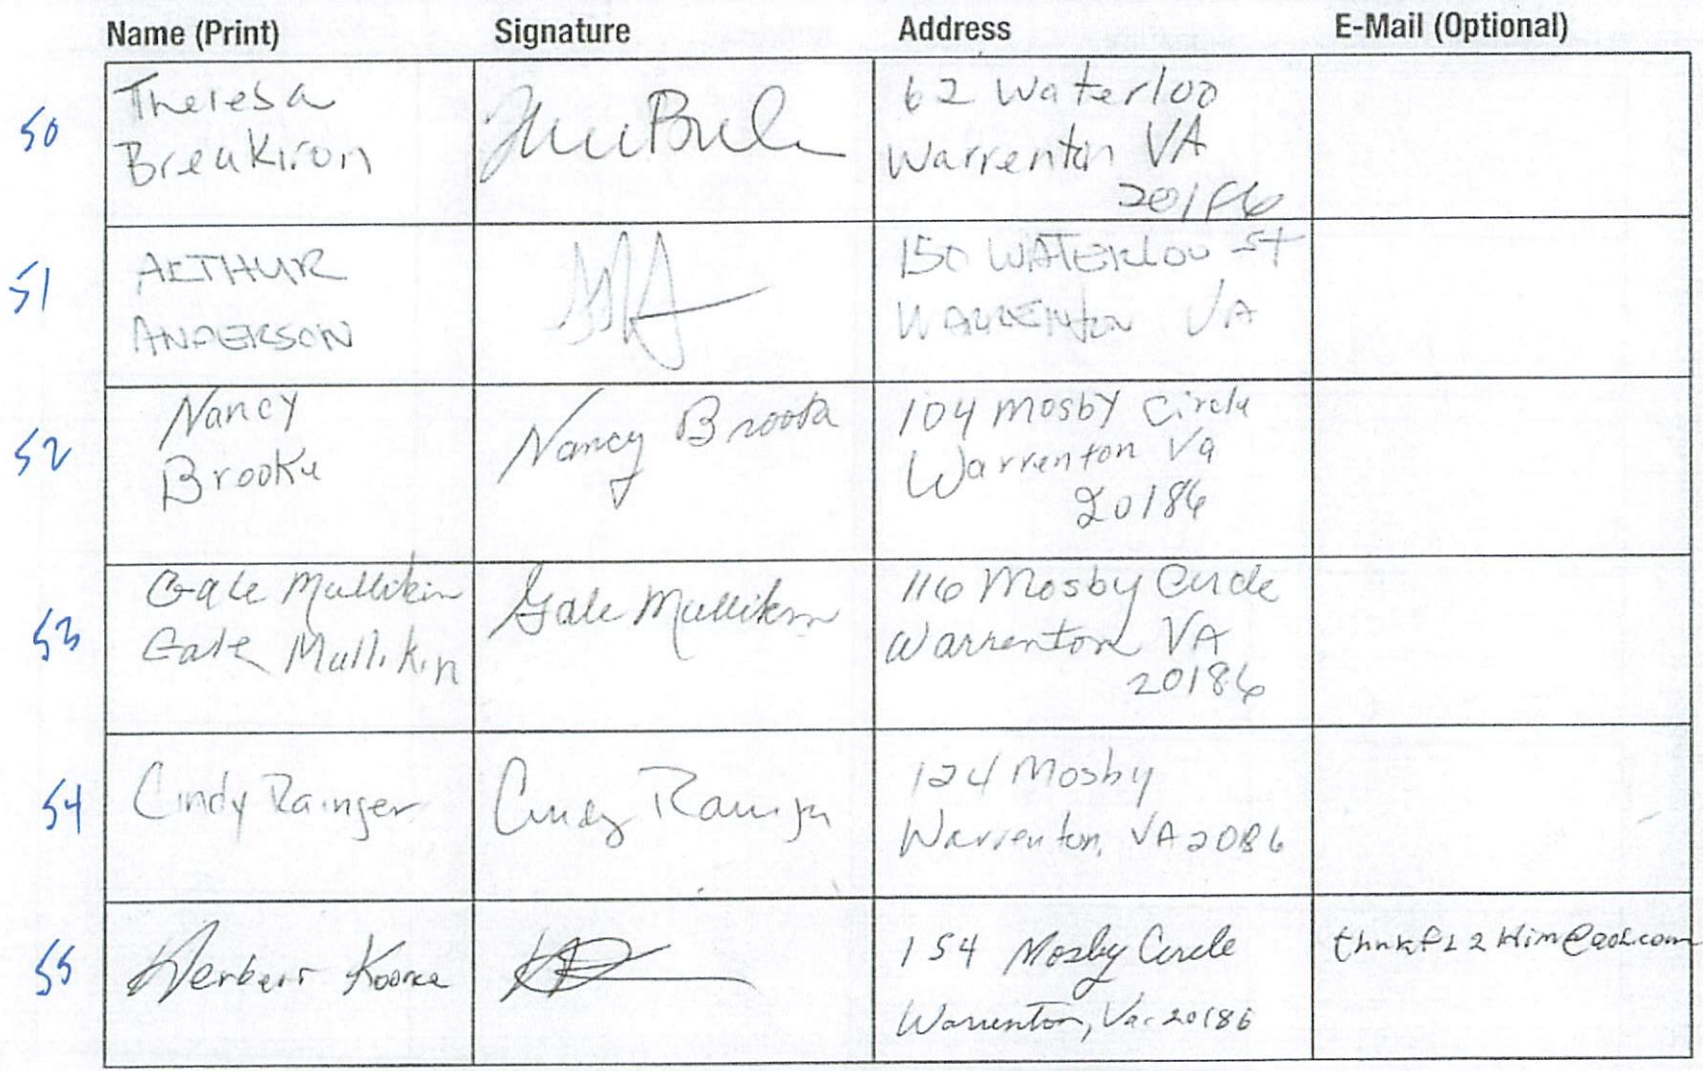 Name (Print) Signature Address E-Mail (Optional)
50
Theresa
Breakiron
62 Waterloo
Warrenton VA
20186
51
ARTHUR
ANDERSON
150 WATERLOO ST
WARRENTON VA
52
Nancy
Brooke
Nancy Brooke
104 Mosby Circle
Warrenton Va
20186
53
Gale Mullikin
Gale Mullikin
Gale Mullikin
116 Mosby Circle
Warrenton VA
20186
54
Cindy Rainger
Cindy Rainger
124 Mosby
Warrenton, VA 2086
55
Herbert
154 Mosby Circle
Warrenton, Va. 20186
thnkfl2Him@aol.com